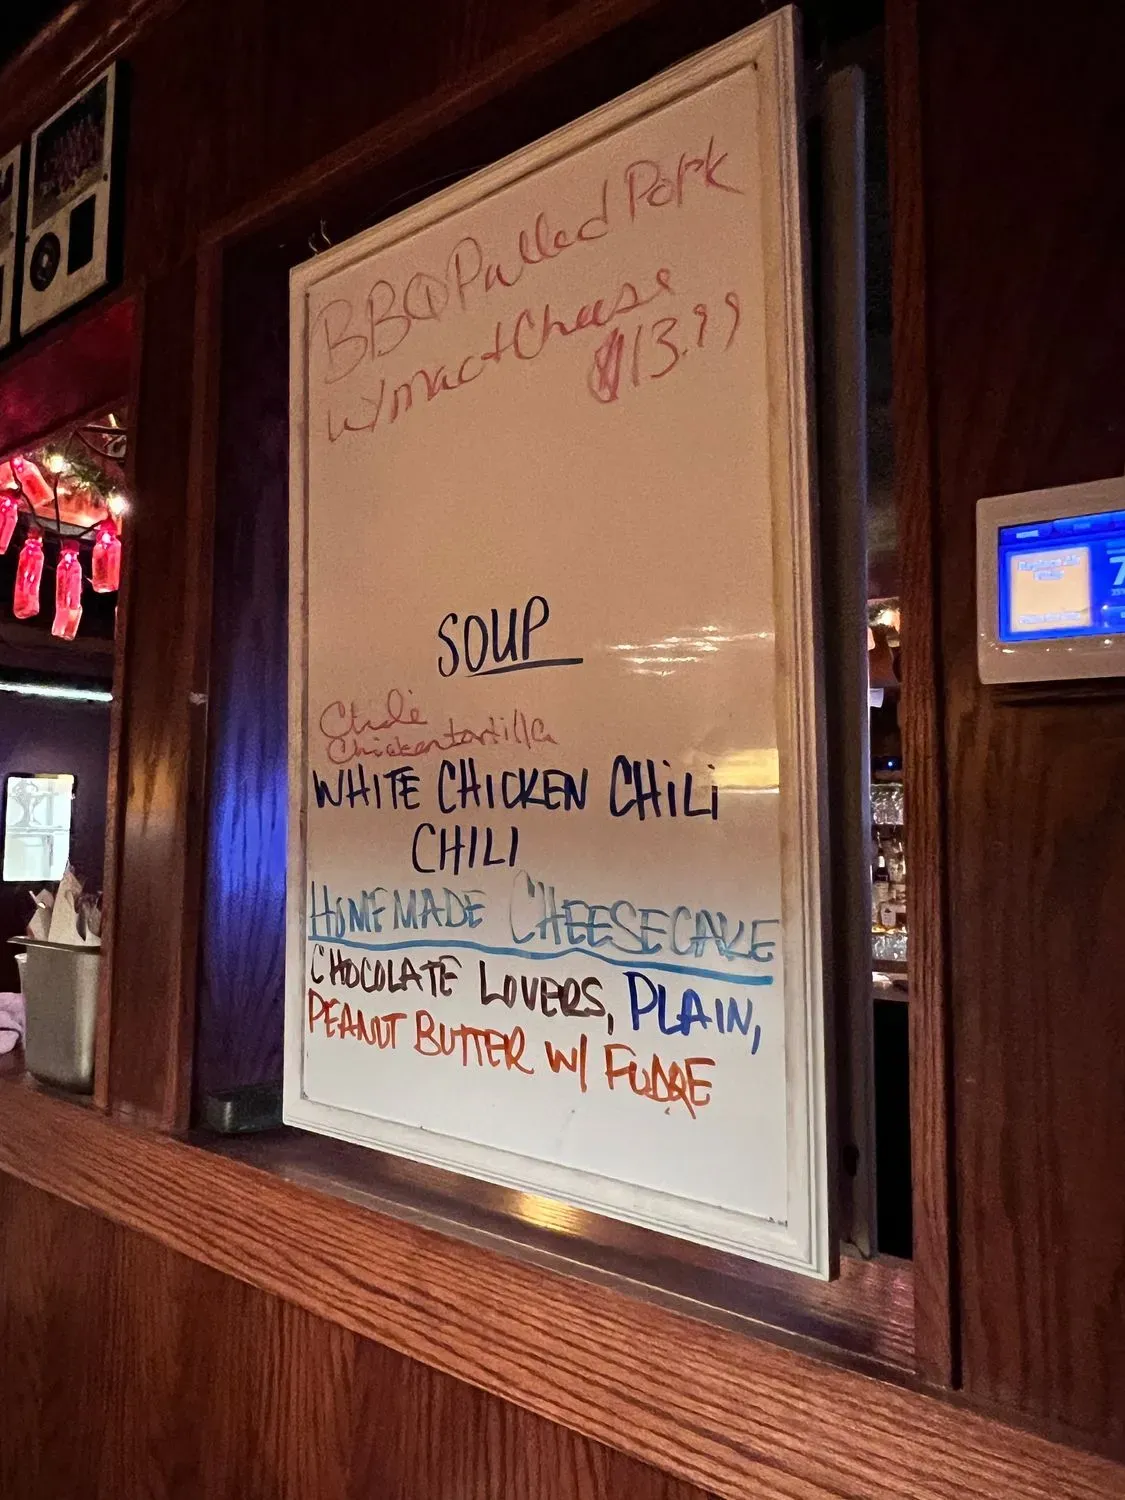 BBQ Pulled Pork
w/mac+Cheese
$13.99
SOUP
Chicken tortilla
WHITE CHICKEN CHiLi
CHILI
HOMEMADE CHEESECAKE
CHOCOLATE LOVERS, PLAIN,
PEANUT BUTTER W/ FUDGE